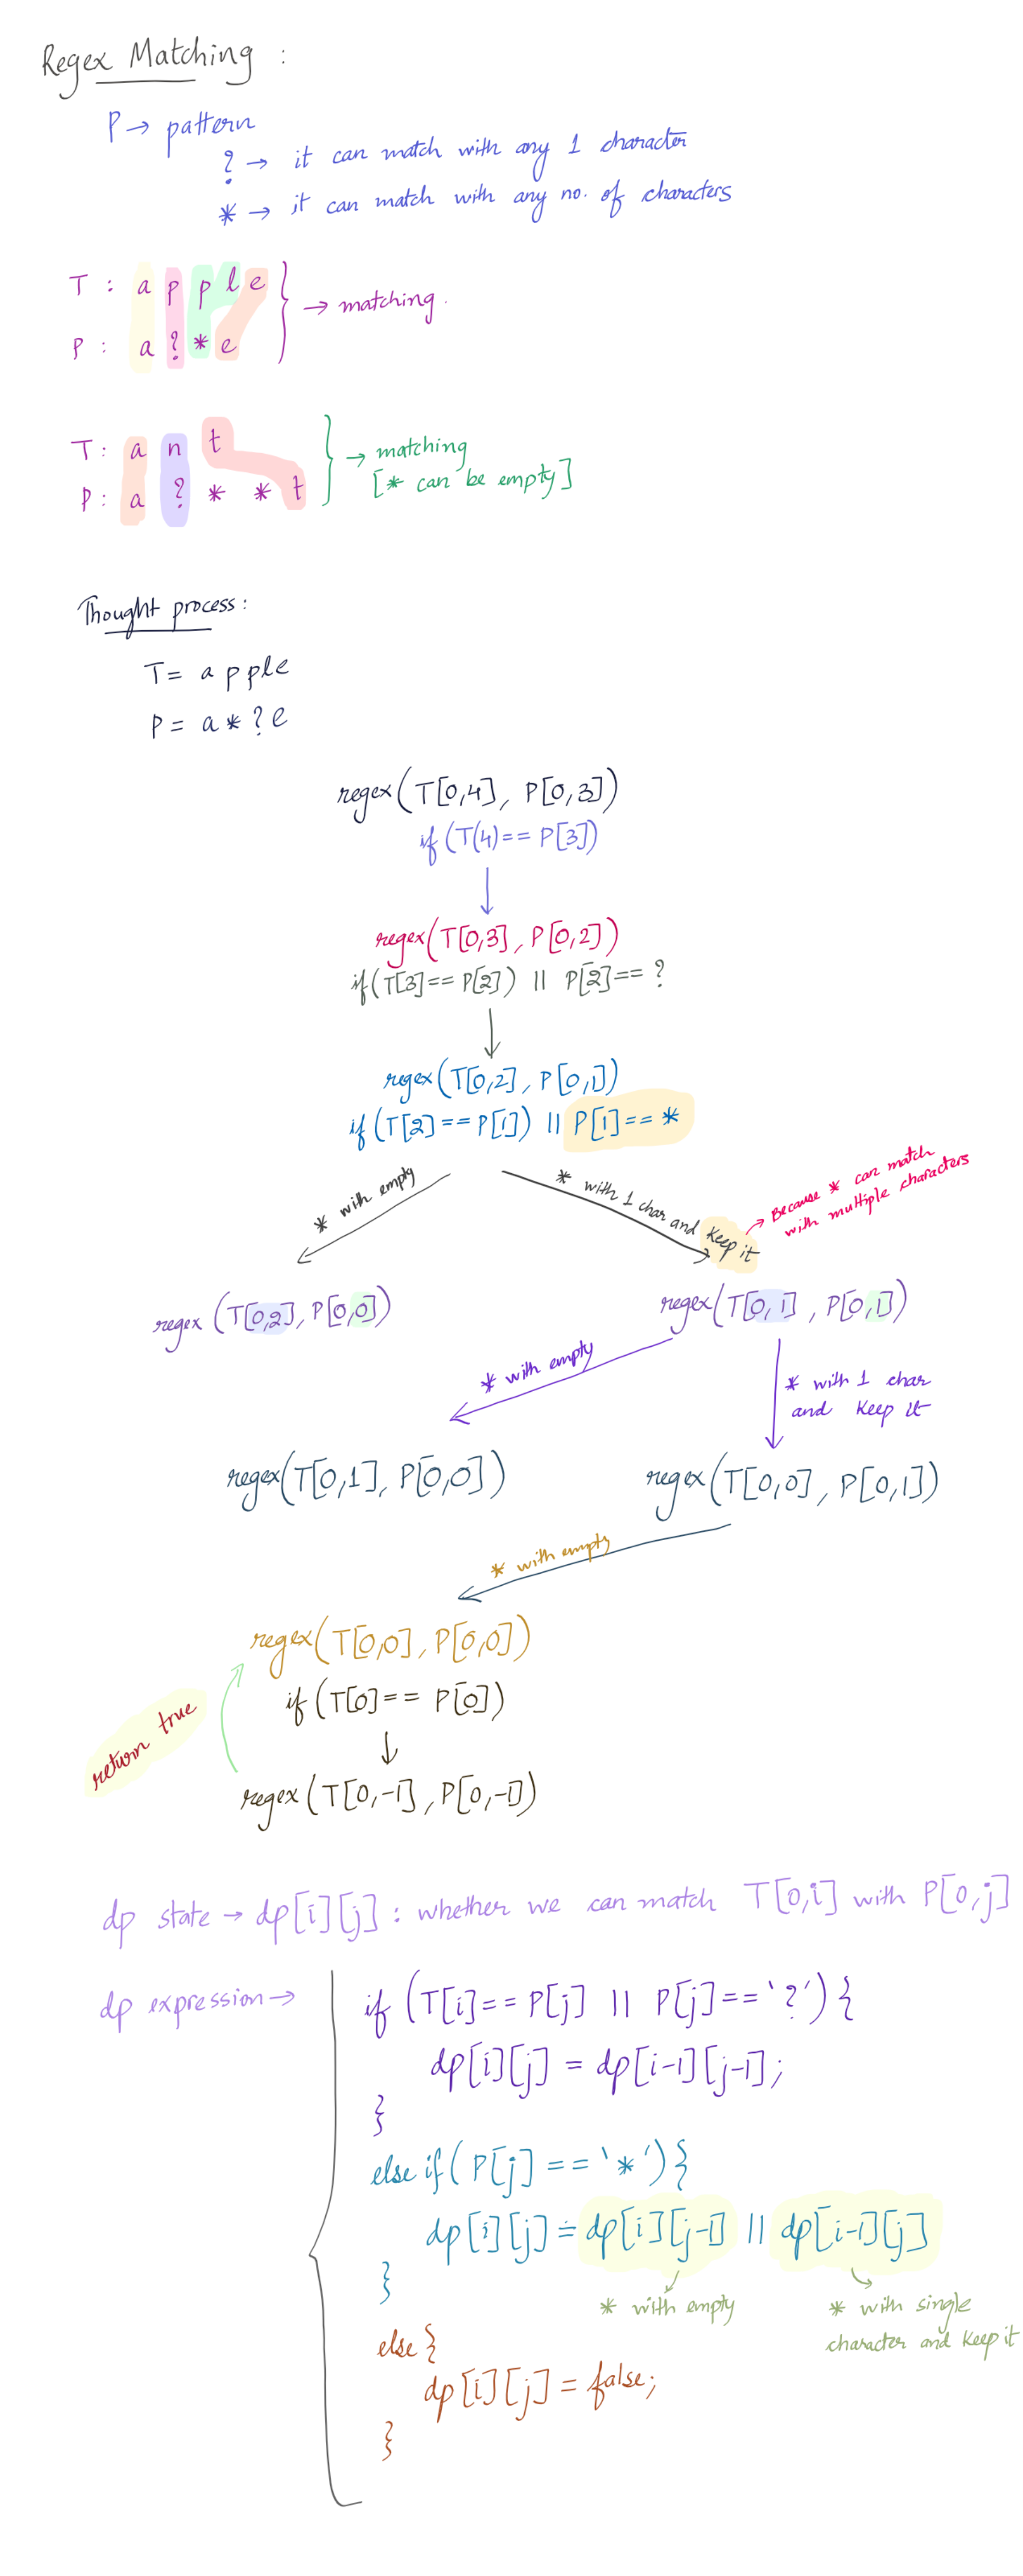 Regex Matching :
P → pattern
? → it can match with any 1 character
* → it can match with any no. of characters
T : a p p l e
P : a ? * e
→ matching.
T : a n t
P : a ? * * t
→ matching
[* can be empty]
Thought process :
T = a p p l e
P = a * ? e
regex(T[0,4], P[0,3])
if (T(4) == P[3])
regex(T[0,3], P[0,2])
if (T[3] == P[2]) || P[2] == ?
regex(T[0,2], P[0,1])
if (T[2] == P[1]) || P[1] == *
* with empty
* with 1 char and keep it
→ Because * can match
with multiple characters
regex (T[0,2], P[0,0])
regex(T[0,1], P[0,1])
* with empty
* with 1 char
and keep it
regex(T[0,1], P[0,0])
regex(T[0,0], P[0,1])
* with empty
regex(T[0,0], P[0,0])
if (T[0] == P[0])
return true
regex (T[0,-1], P[0,-1])
dp state → dp[i][j] : whether we can match T[0,i] with P[0,j]
dp expression →
if (T[i] == P[j] || P[j] == '?') {
dp[i][j] = dp[i-1][j-1];
}
else if (P[j] == '*') {
dp[i][j] = dp[i][j-1] || dp[i-1][j]
}
* with empty
* with single
character and keep it
else {
dp[i][j] = false;
}